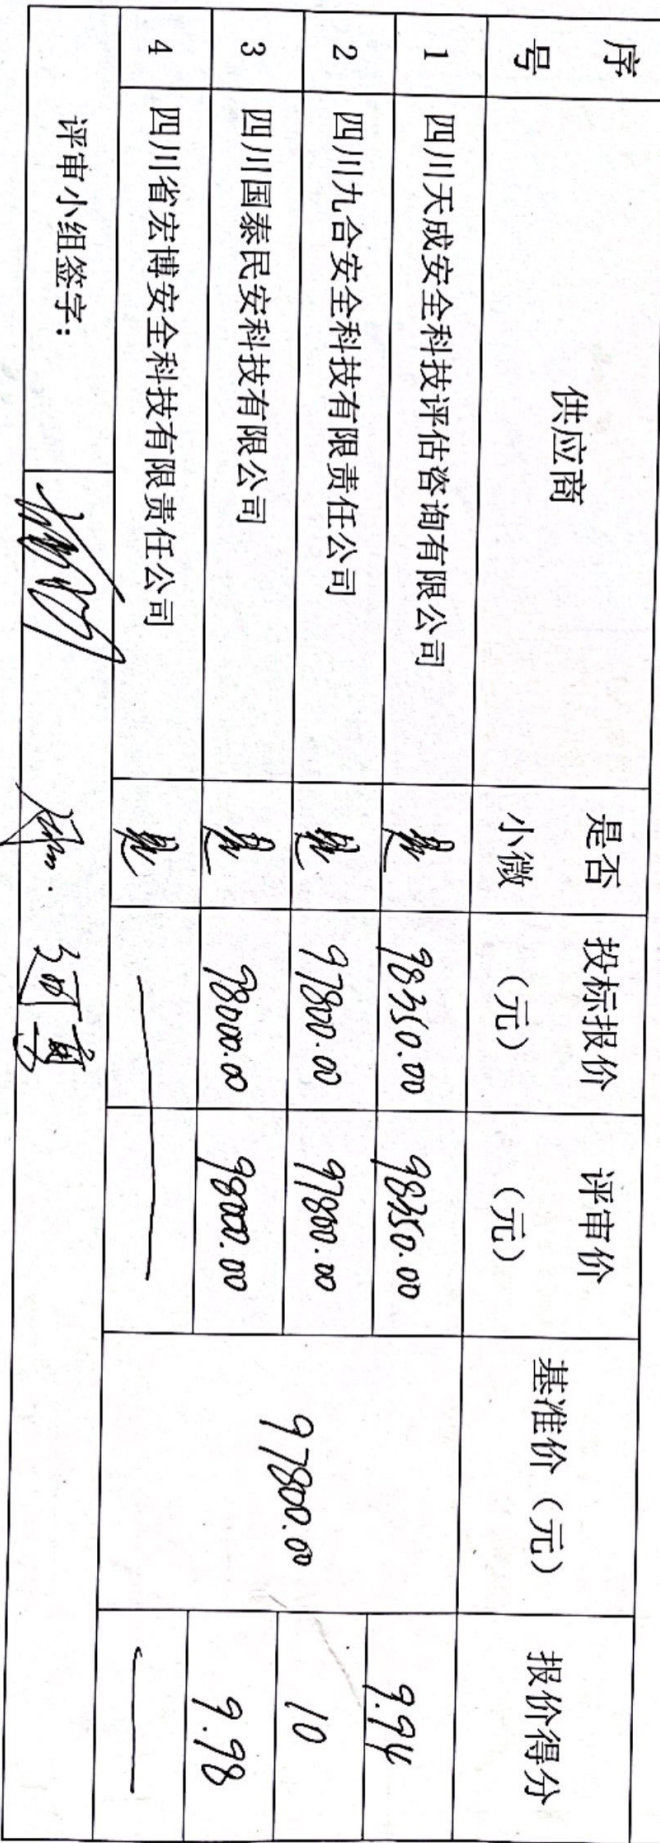 序号 供应商 是否小微 投标报价（元） 评审价（元） 基准价（元） 报价得分
1 四川天成安全科技评估咨询有限公司 是 98350.00 98350.00 97800.00 9.94
2 四川九合安全科技有限责任公司 是 97800.00 97800.00 10
3 四川国泰民安科技有限公司 是 98000.00 98000.00 9.98
4 四川省宏博安全科技有限责任公司 是 — — —
评审小组签字：